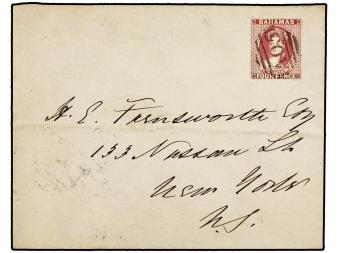 BAHAMAS
FOUR PENCE
H. E. Farnsworth Esq
133 Nassau St
New York
U.S.